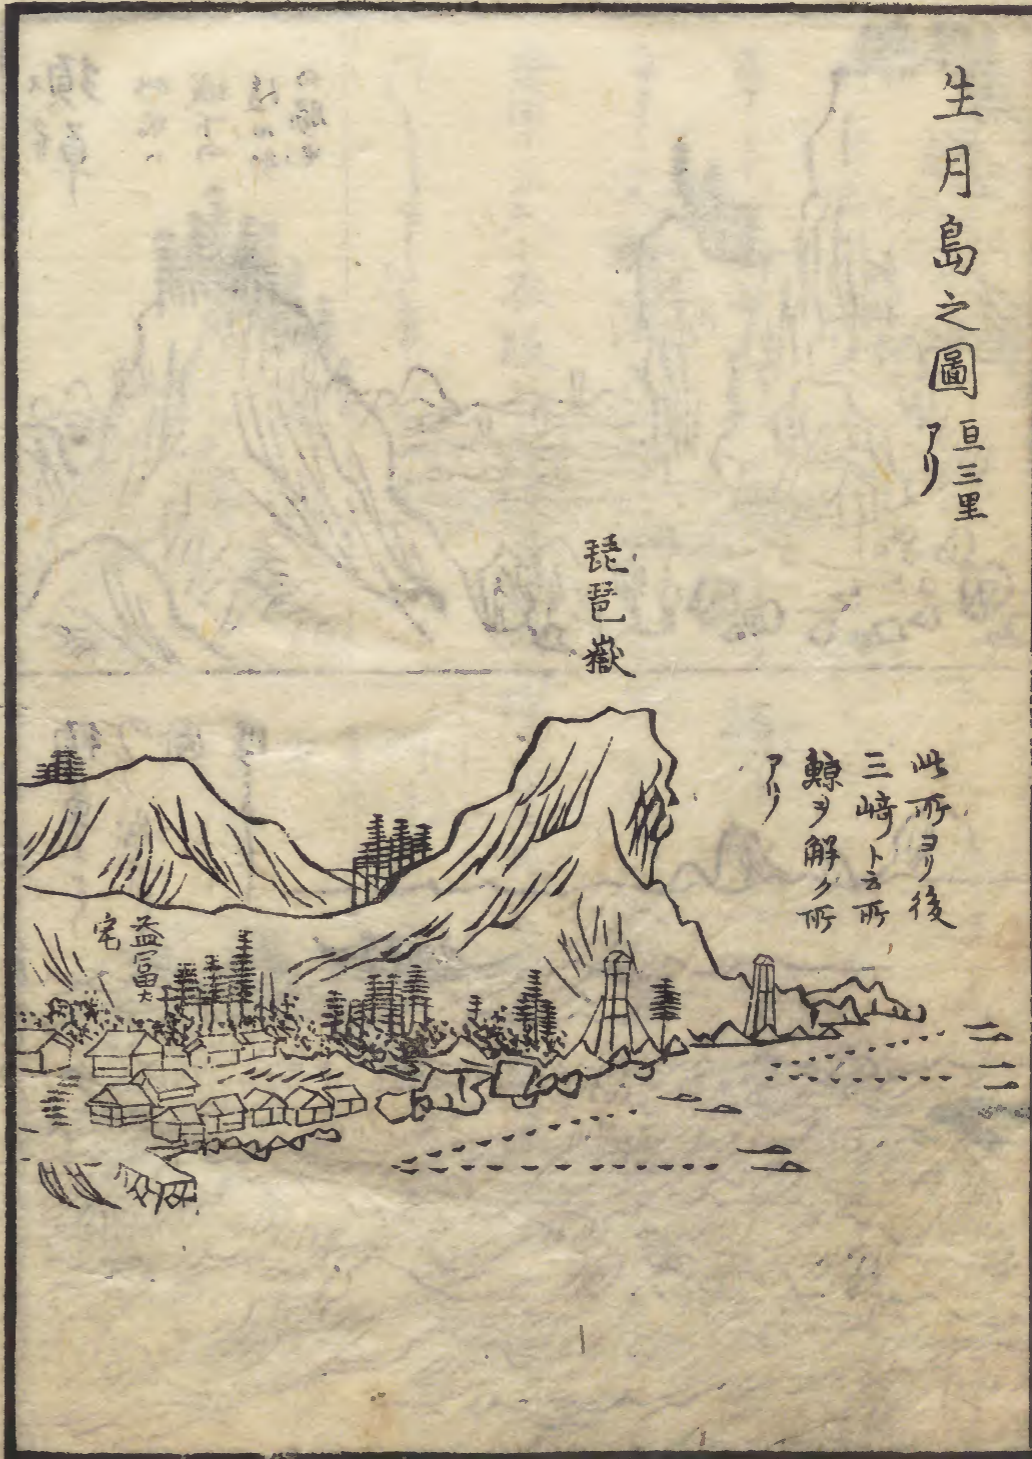 生月島之圖
亘三里
アリ
琵琶嶽
此所ヨリ後
三﨑ト云所
鯨ヲ解ク所
アリ
益冨
宅